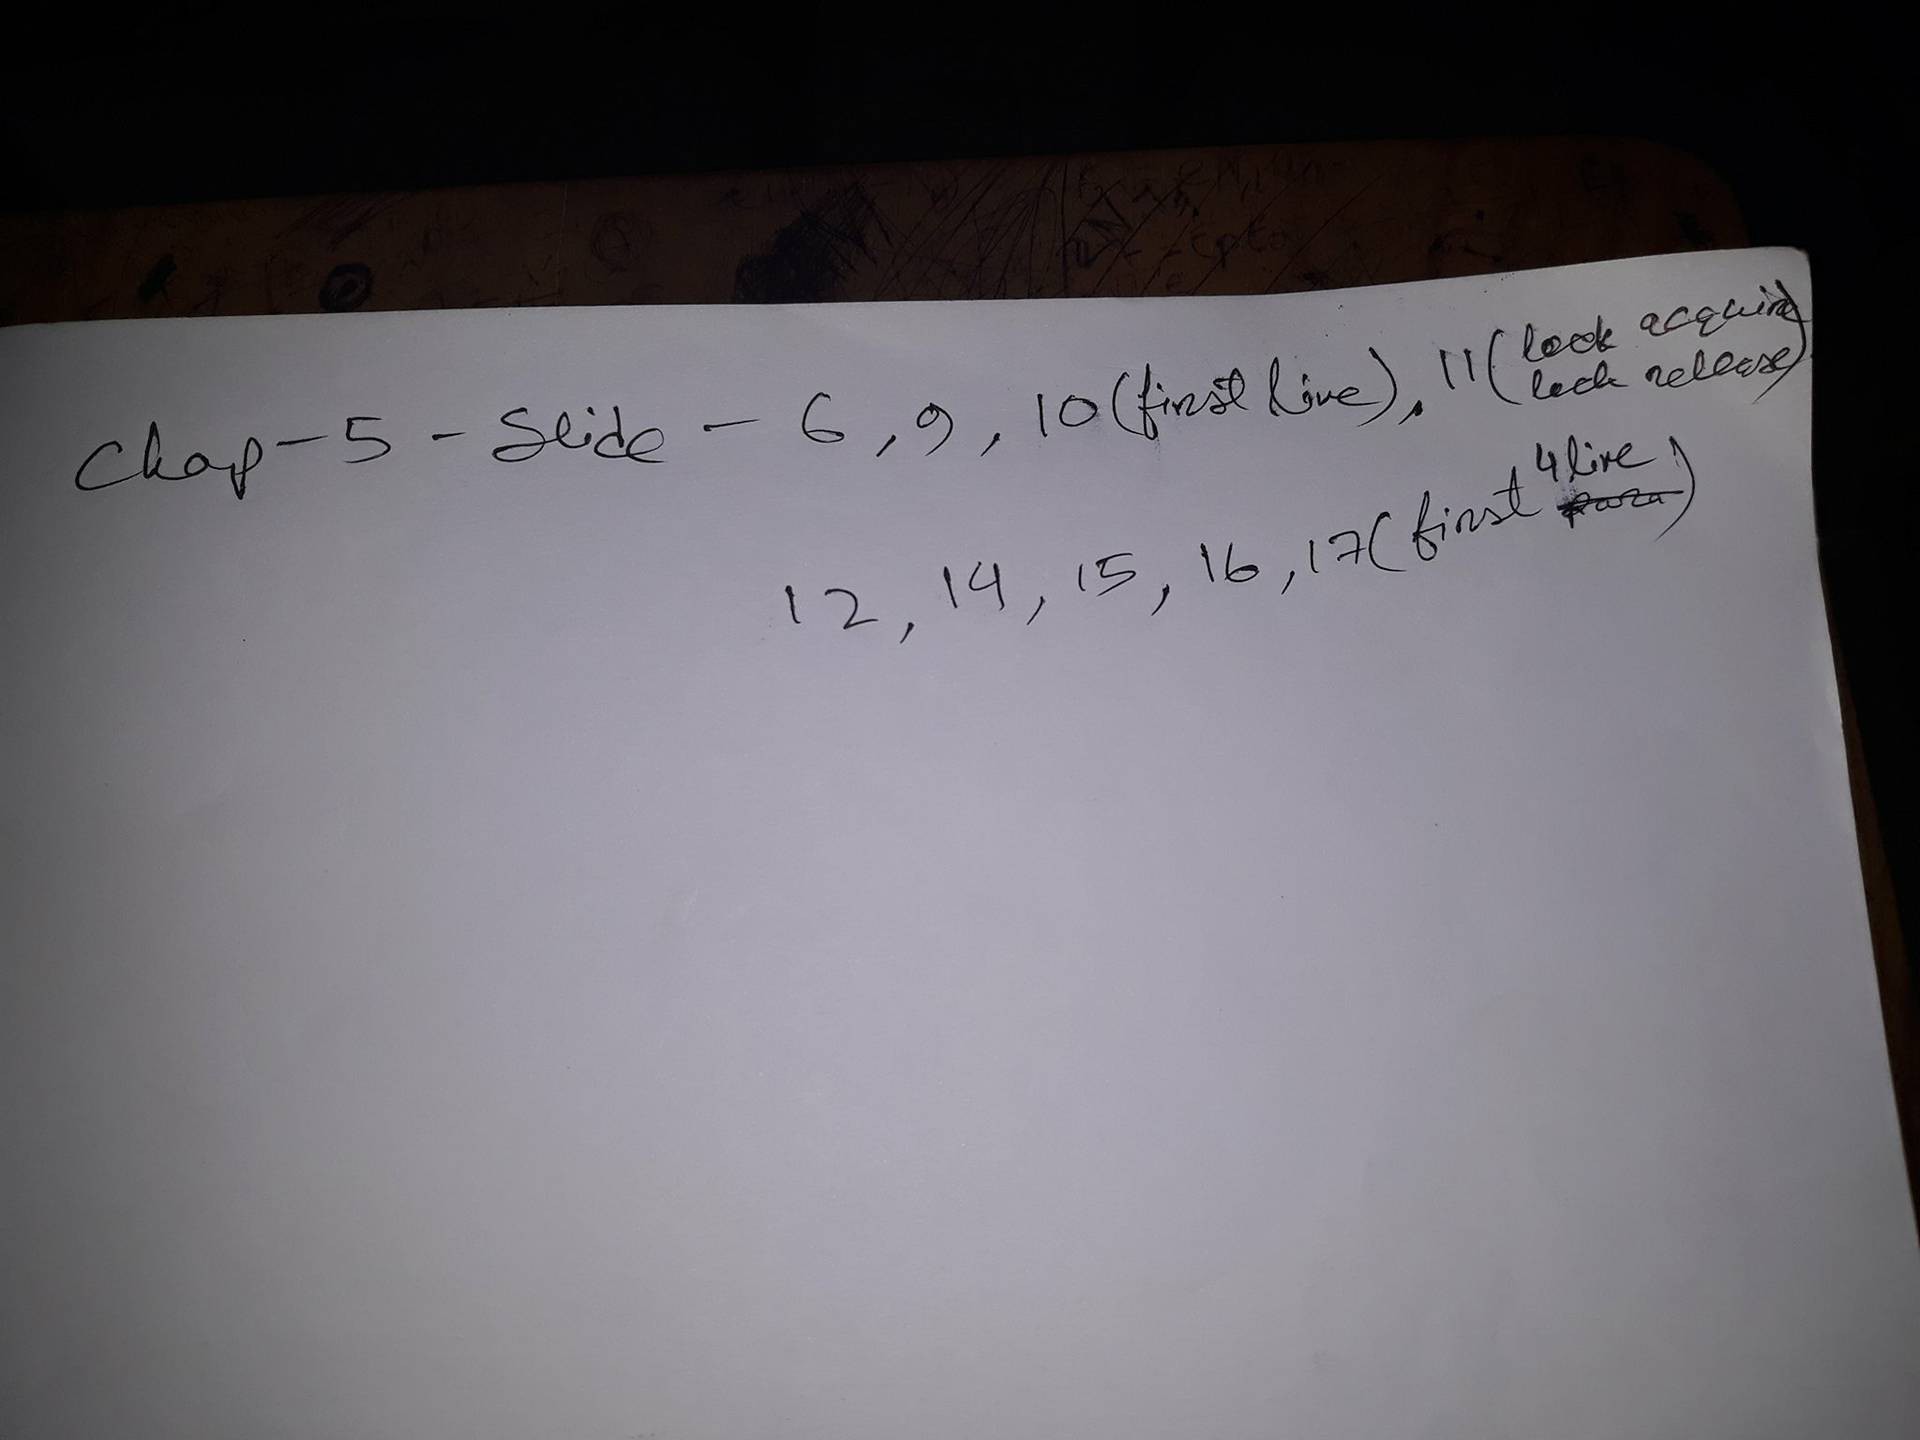 Chap-5 - Slide - 6, 9, 10 (first line), 11 (lock acquire
lock release)
12, 14, 15, 16, 17 (first 4 line)